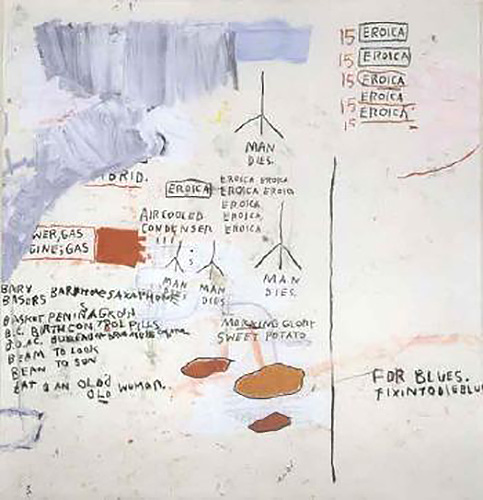 15 EROICA
15 EROICA
15 EROICA
15 EROICA
15 EROICA
MAN
DIES.
BRID.
EROICA
EROICA EROICA
EROICA EROIC
EROICA
EROICA,
EROICA
AIR COOLED
CONDENSER
WER; GAS
GINE; GAS
MAN
DIES
MAN
DIES
MAN
DIES.
BARY
BASERS BARITONE SAXAPHONE
BASKET PENINAGKUN
B.C. BIRTH CONTROL PILLS
B.O.A.C.
BEAM TO LOOK
BEAN TO SUN
EAT @ AN OLD WOMAN.
OLD
MORNING GLORY
SWEET POTATO
FOR BLUES.
FIXINTODIEBLU